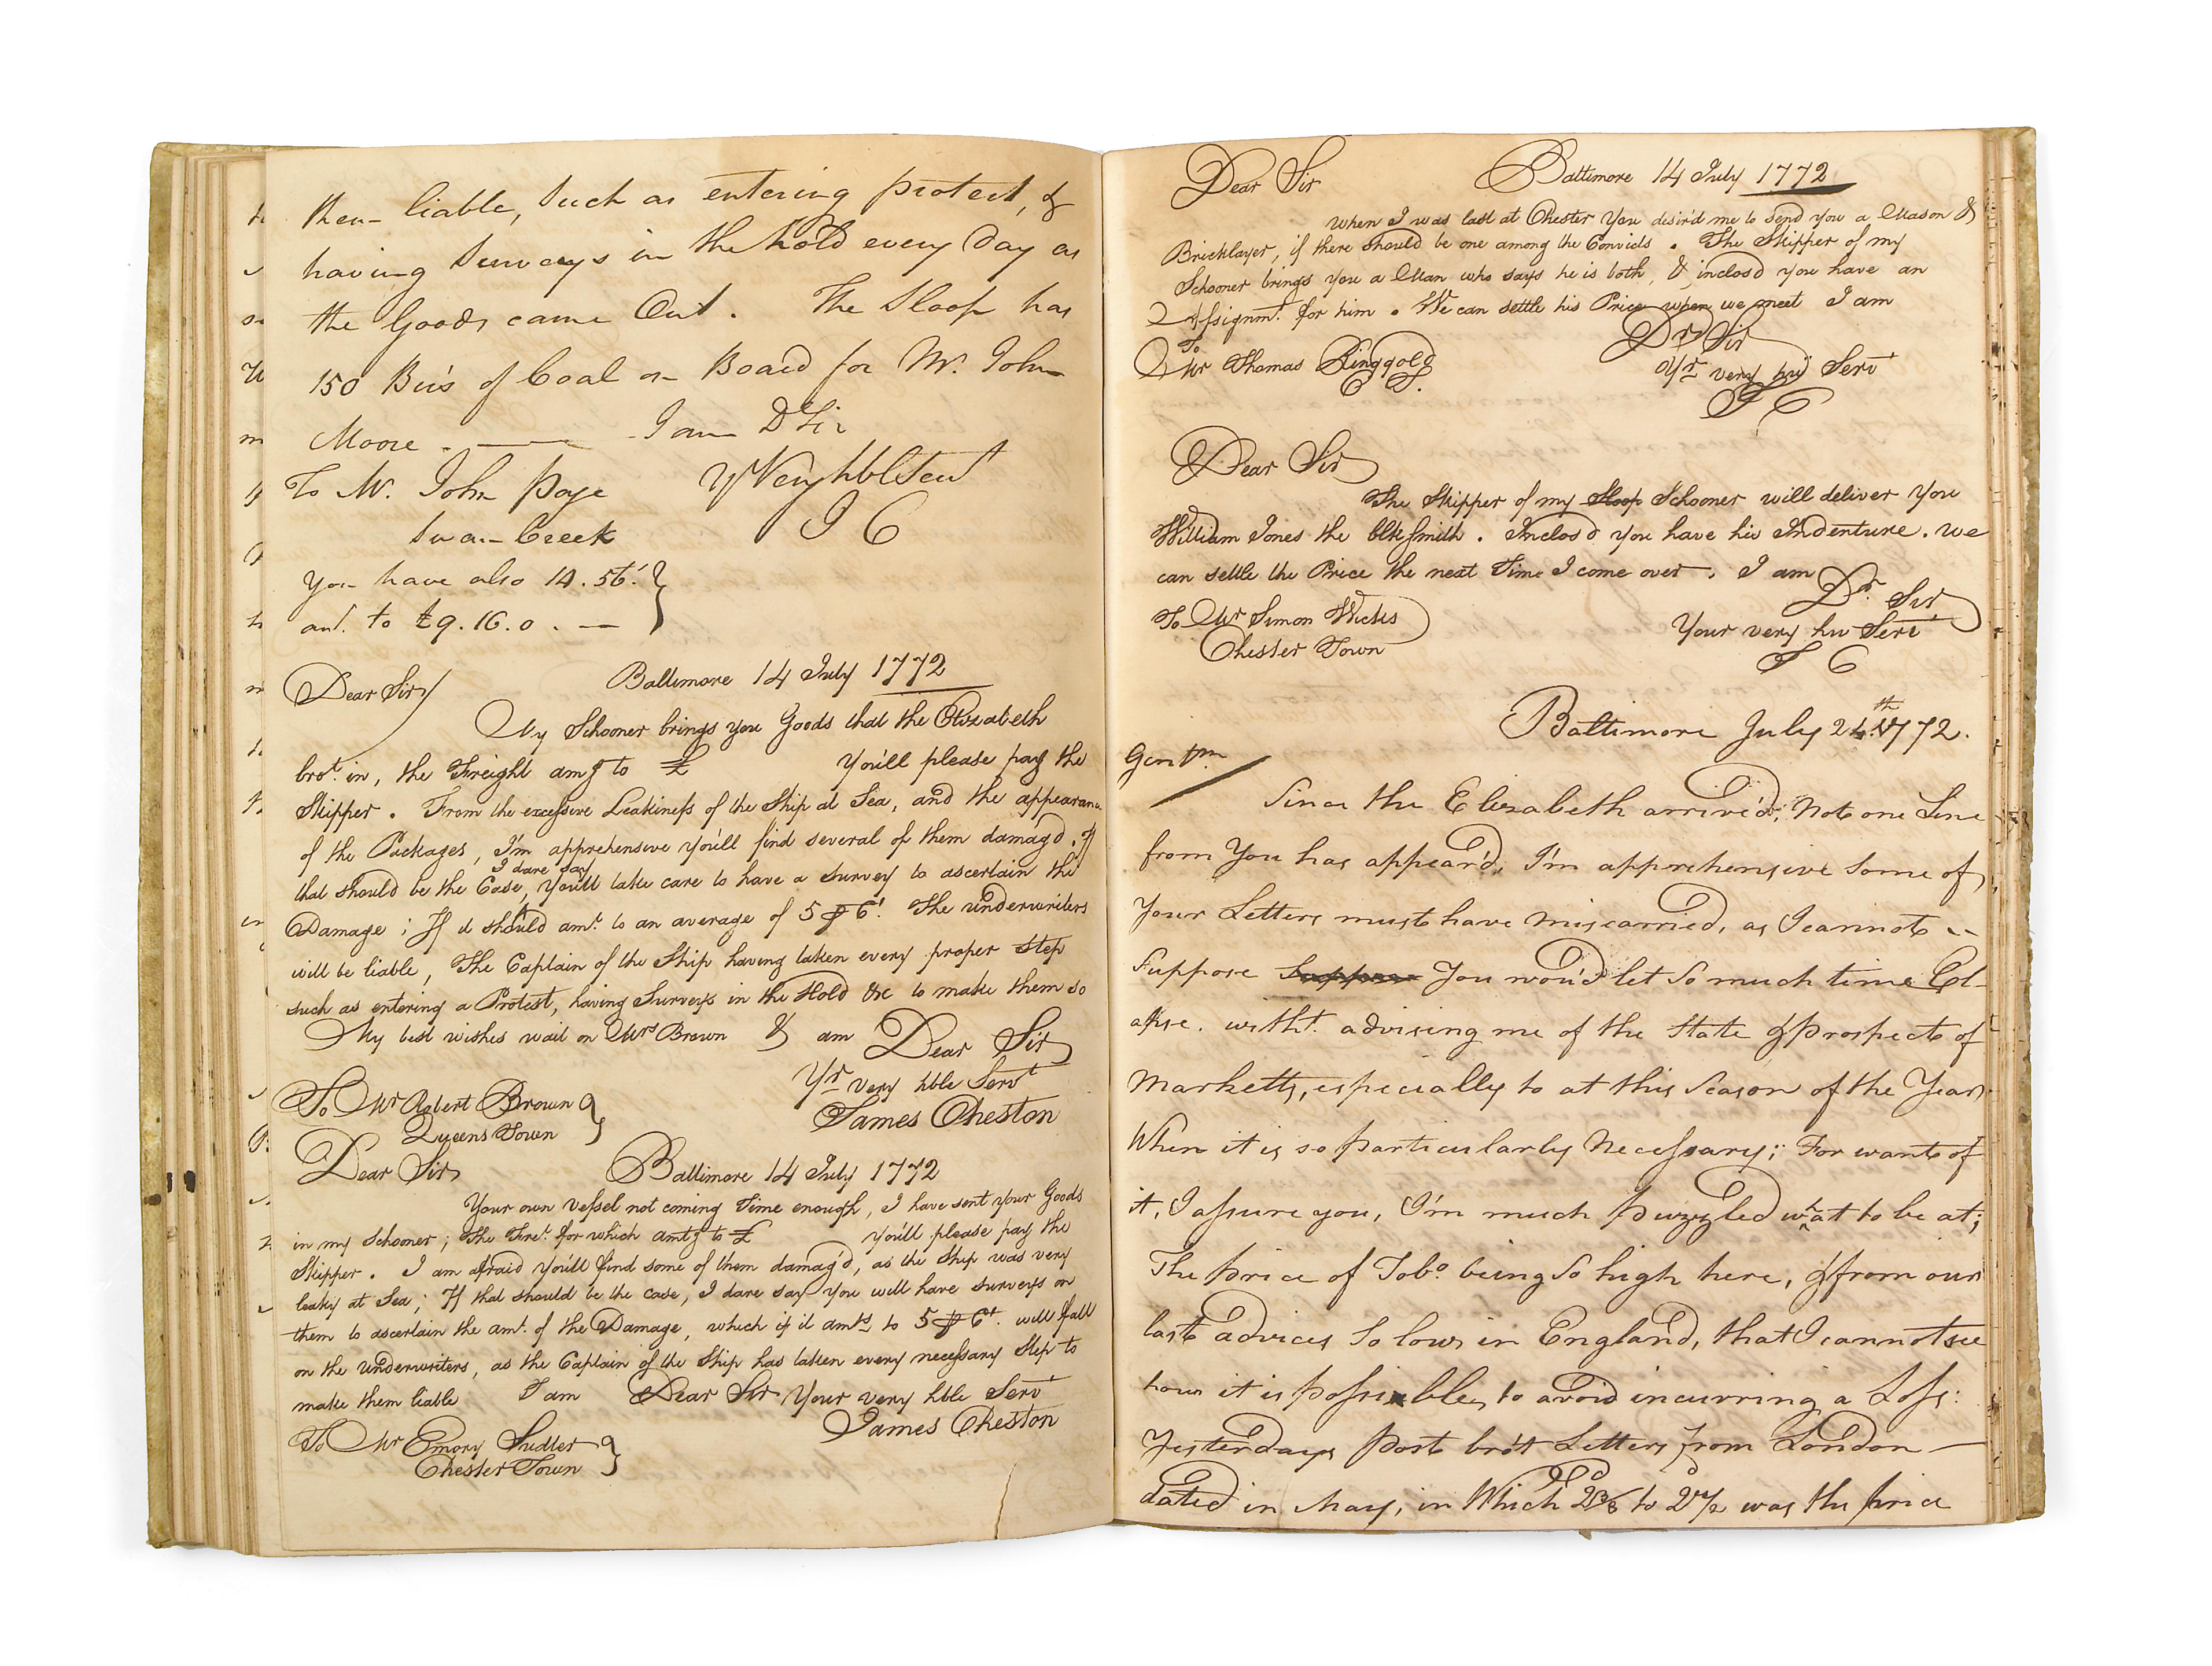 then liable, Such as entering protest, &
having Surveys in the hold every Day as
the Goods came Out. The Sloop has
150 Bus of Coal on Board for Mr. John
Moore. I am D Sir
To Mr. John Page Yr Very hbl Servt
Swan Creek J C
You have also 14. 56
amt. to £9. 16. 0. —
Dear Sir Baltimore 14 July 1772
My Schooner brings you Goods that the Elizabeth
brot. in, the Freight amg to £ You'll please pay the
Skipper. From the excessive Leakiness of the Ship at Sea, and the appearance
of the Packages, I'm apprehensive you'll find several of them damag'd. If
that should be the Case, I dare say you'll take care to have a survey to ascertain the
Damage; If it should amt. to an average of 5 ⅌ Ct. The underwriters
will be liable, The Captain of the Ship having taken every proper step
such as entering a Protest, having Surveys in the Hold &c to make them so
My best wishes wait on Mrs Brown & am Dear Sir
Yr very hble Servt
To Mr Robert Brown James Cheston
Queens Town
Dear Sir Baltimore 14 July 1772
Your own Vessel not coming Time enough, I have sent your Goods
in my Schooner; The Fret. for which amtg to £ you'll please pay the
Skipper. I am afraid you'll find some of them damag'd, as the Ship was very
leaky at Sea; If that should be the case, I dare say you will have surveys on
them to ascertain the amt. of the Damage, which if it amts to 5 ⅌ Ct. will fall
on the underwriters, as the Captain of the Ship has taken every necessary Step to
make them liable I am Dear Sir Your very hble Servt
James Cheston
To Mr Emory Sudler
Chester Town
Dear Sir Baltimore 14 July 1772
When I was last at Chester You desir'd me to send you a Mason &
Bricklayer, if there should be one among the Convicts. The Skipper of my
Schooner brings you a Man who says he is both, & inclos'd you have an
Assignmt. for him. We can settle his Price when we meet I am
Dr Sir
To
Mr Thomas Ringgold Yr very hu Servt
J C
Dear Sir
The Skipper of my Sloop Schooner will deliver you
William Jones the blksmith. Inclos'd you have his Indenture. we
can settle the Price the next Time I come over. I am Dr. Sir
To Mr Simon Wickes Your very hu Servt
Chester Town J C
Baltimore July 24th. 1772.
Gentm
Since the Elizabeth arriv'd, Not one Line
from You has appear'd; I'm apprehensive Some of
Your Letters must have miscarried, as I cannot
Suppose Suppose You wou'd let So much time El-
apse. witht. advising me of the State & prospect of
Marketts, especially to at this Season of the Year
When it is so particularly Necessary; For want of
it, I assure you, I'm much puzzled what to be at;
The price of Tobo. being So high here, & from our
last advices So low in England, that I cannot see
how it is possible, to avoid incurring a Loss:
Yesterdays post bro't Letters from London —
dated in May, in Which 2⅜ to 2½ was the price